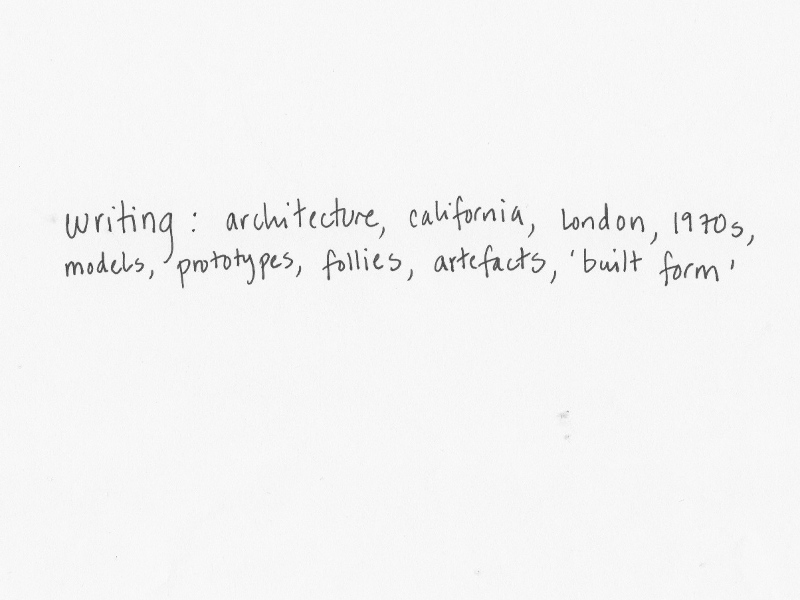 writing: architecture, california, London, 1970s,
models, prototypes, follies, artefacts, 'built form'